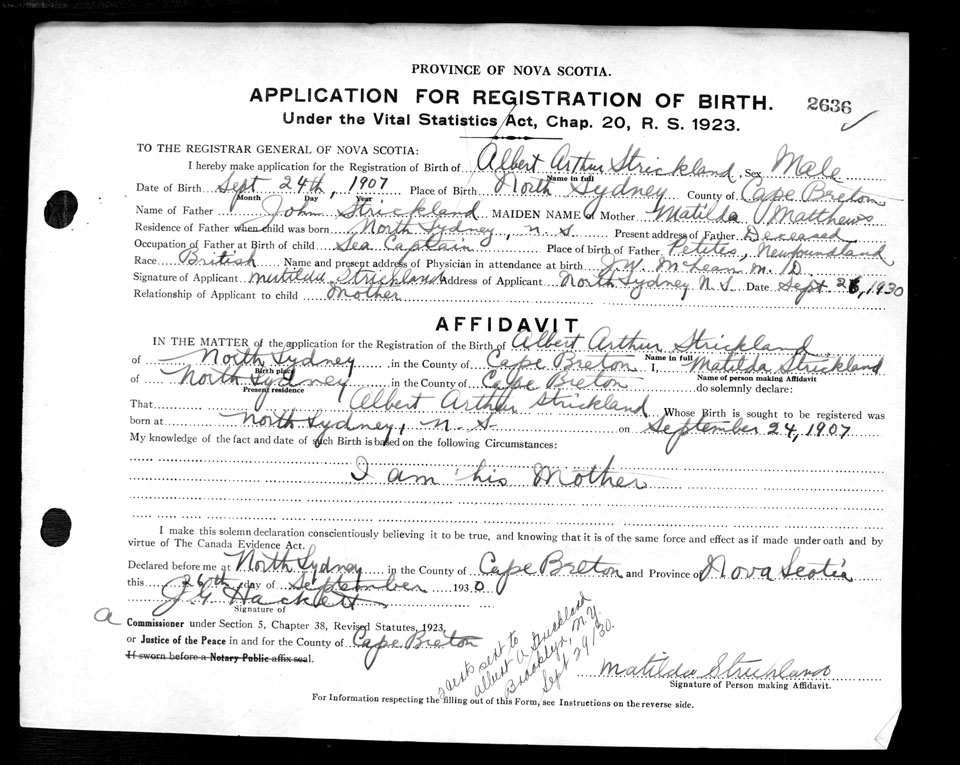 PROVINCE OF NOVA SCOTIA.
APPLICATION FOR REGISTRATION OF BIRTH. 2636
Under the Vital Statistics Act, Chap. 20, R. S. 1923.
TO THE REGISTRAR GENERAL OF NOVA SCOTIA:
I hereby make application for the Registration of Birth of Albert Arthur Strickland, Sex Male
Name in full
Date of Birth Sept 24th, 1907 Place of Birth North Sydney County of Cape Breton
Month Day Year
Name of Father John Strickland MAIDEN NAME of Mother Matilda Matthews
Residence of Father when child was born North Sydney, N. S. Present address of Father Deceased
Occupation of Father at Birth of child Sea Captain Place of birth of Father Petites, Newfoundland
Race British Name and present address of Physician in attendance at birth J. W. McLean M. D.
Signature of Applicant Matilda Strickland Address of Applicant North Sydney N. S. Date Sept 26, 1930
Relationship of Applicant to child Mother
AFFIDAVIT
IN THE MATTER of the application for the Registration of the Birth of Albert Arthur Strickland
Name in full
of North Sydney in the County of Cape Breton I, Matilda Strickland
Birth place Name of person making Affidavit
of North Sydney in the County of Cape Breton do solemnly declare:
Present residence
That Albert Arthur Strickland Whose Birth is sought to be registered was
born at North Sydney, N. S. on September 24, 1907
My knowledge of the fact and date of such Birth is based on the following Circumstances:
I am his Mother
I make this solemn declaration conscientiously believing it to be true, and knowing that it is of the same force and effect as if made under oath and by
virtue of The Canada Evidence Act.
Declared before me at North Sydney in the County of Cape Breton and Province of Nova Scotia
this 26th day of September 1930
J G Hackett
Signature of
a Commissioner under Section 5, Chapter 38, Revised Statutes, 1923,
or Justice of the Peace in and for the County of Cape Breton
If sworn before a Notary Public affix seal.
2 certs sent to
Albert A Strickland
Brooklyn, N.Y.
Sept 29/30.
Matilda Strickland
Signature of Person making Affidavit.
For Information respecting the filling out of this Form, see Instructions on the reverse side.